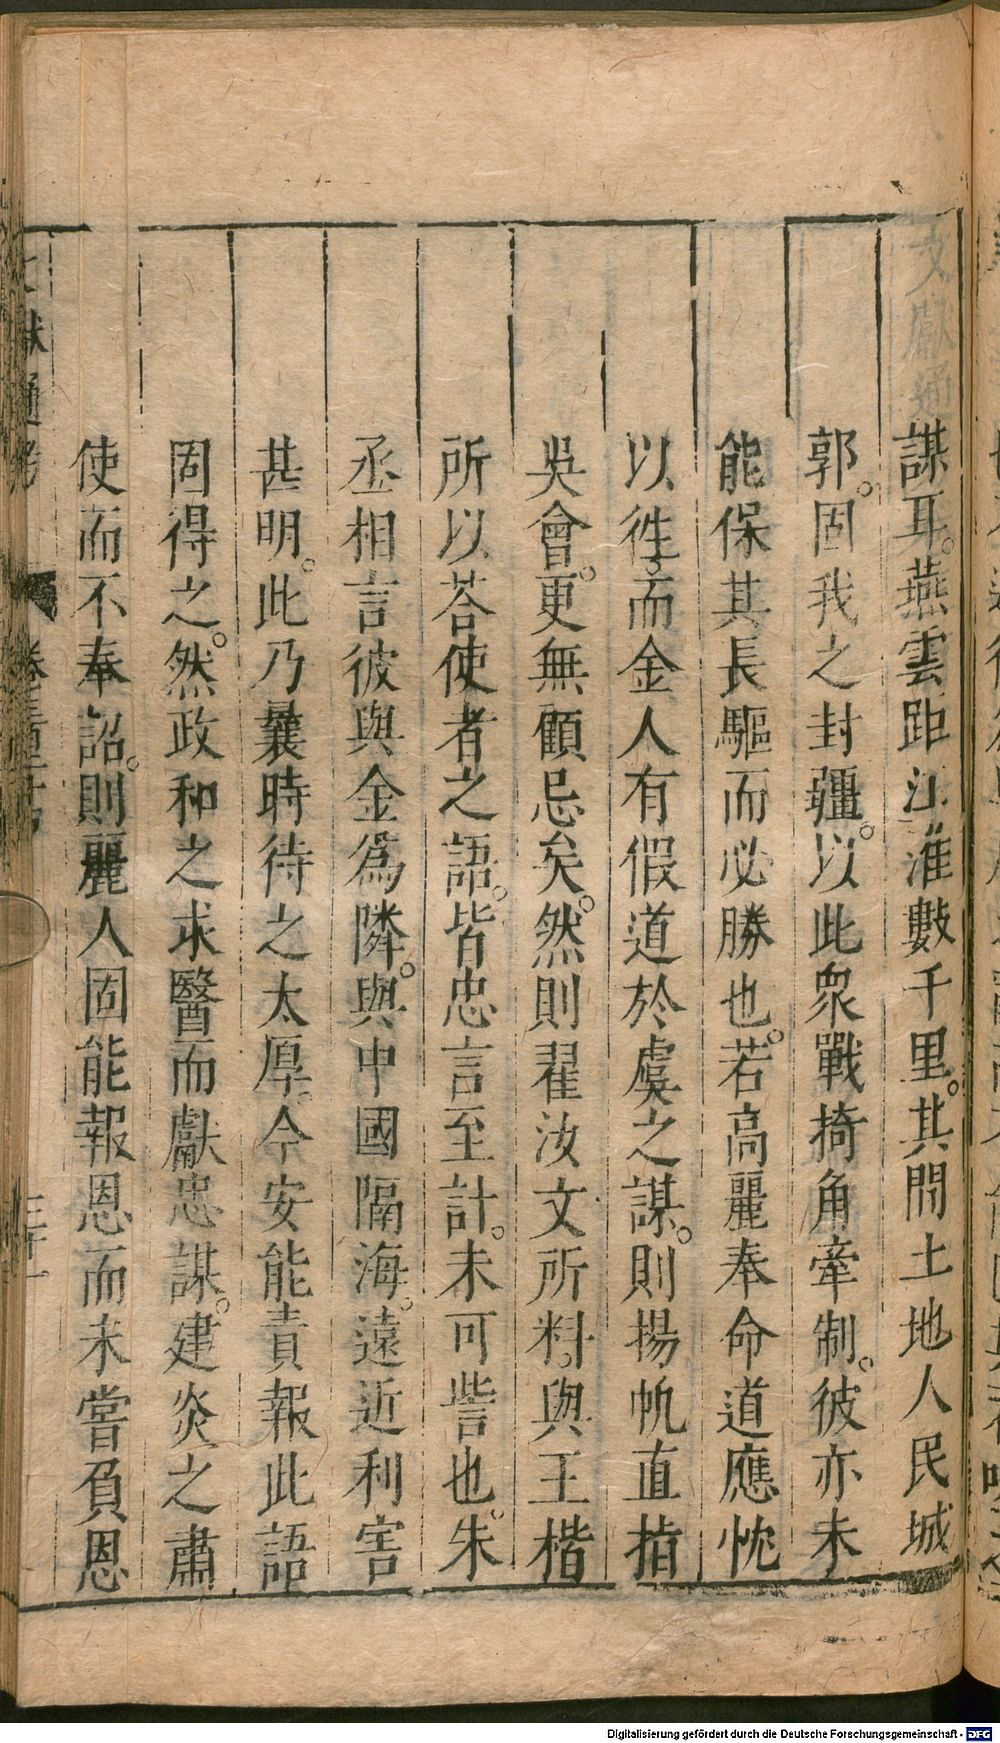 謀耳。燕雲距江淮數千里。其間土地人民城
郭。固我之封疆。以此衆戰掎角牽制。彼亦未
能保其長驅而必勝也。若高麗奉命道應忱
以徃。而金人有假道於虞之謀。則揚帆直指
吳會。更無顧忌矣。然則翟汝文所料。與王楷
所以荅使者之語。皆忠言至計。未可訾也。朱
丞相言彼與金爲隣。與中國隔海。遠近利害
甚明。此乃曩時待之太厚。今安能責報此語
固得之。然政和之求醫而獻忠謀。建炎之肅
使而不奉詔。則麗人固能報恩而未嘗負恩
文獻通考
Digitalisierung gefördert durch die Deutsche Forschungsgemeinschaft - DFG